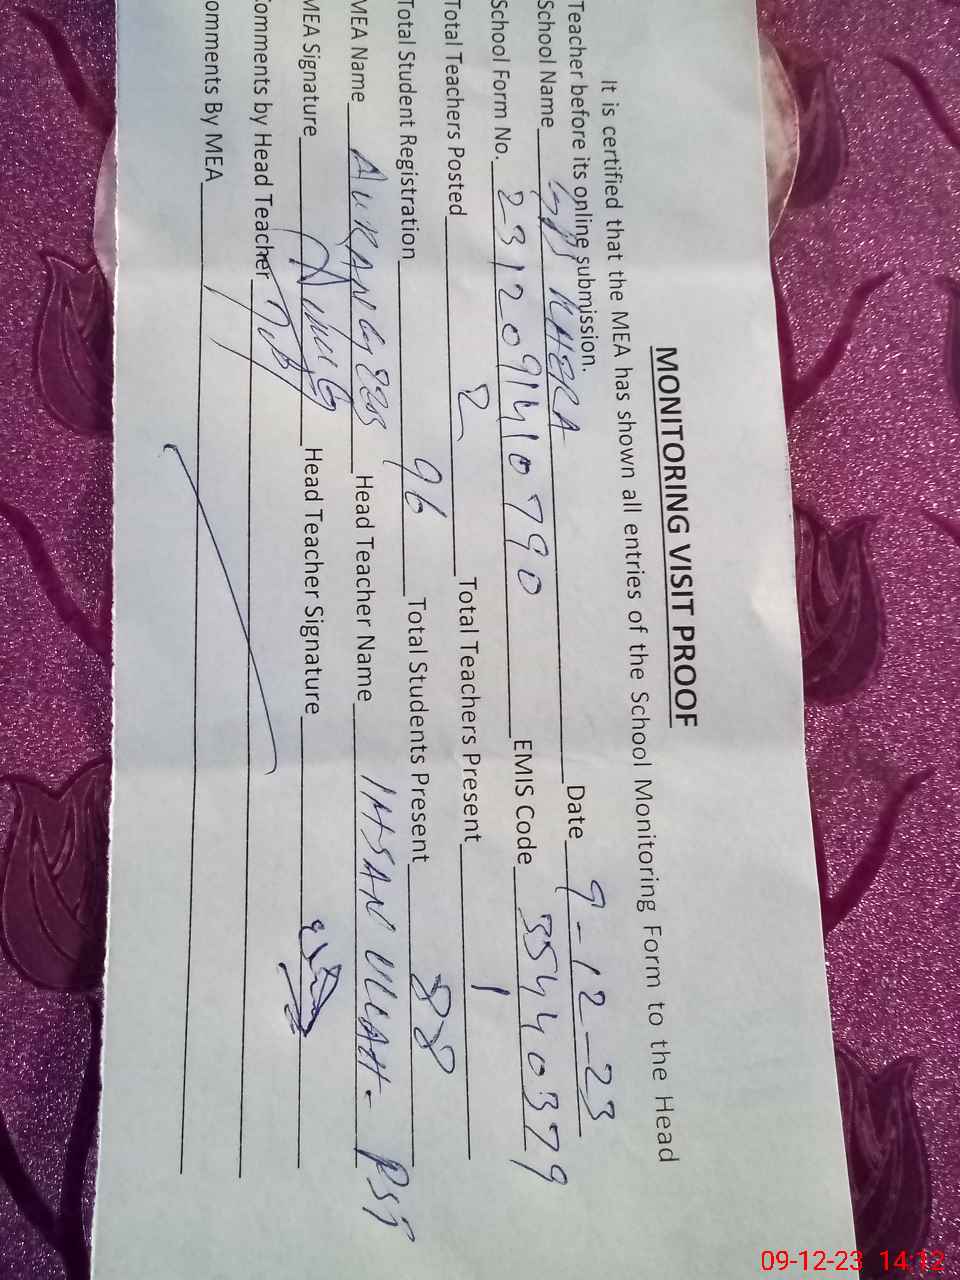 MONITORING VISIT PROOF
It is certified that the MEA has shown all entries of the School Monitoring Form to the Head
Teacher before its online submission.
School Name GPS KHERA Date 9-12-23
School Form No. 2312091410790 EMIS Code 35440379
Total Teachers Posted 2 Total Teachers Present 1
Total Student Registration 96 Total Students Present 88
MEA Name AURANGZEB Head Teacher Name IHSAN ULLAH- PST
MEA Signature Head Teacher Signature
omments by Head Teacher
omments By MEA
09-12-23 14:12